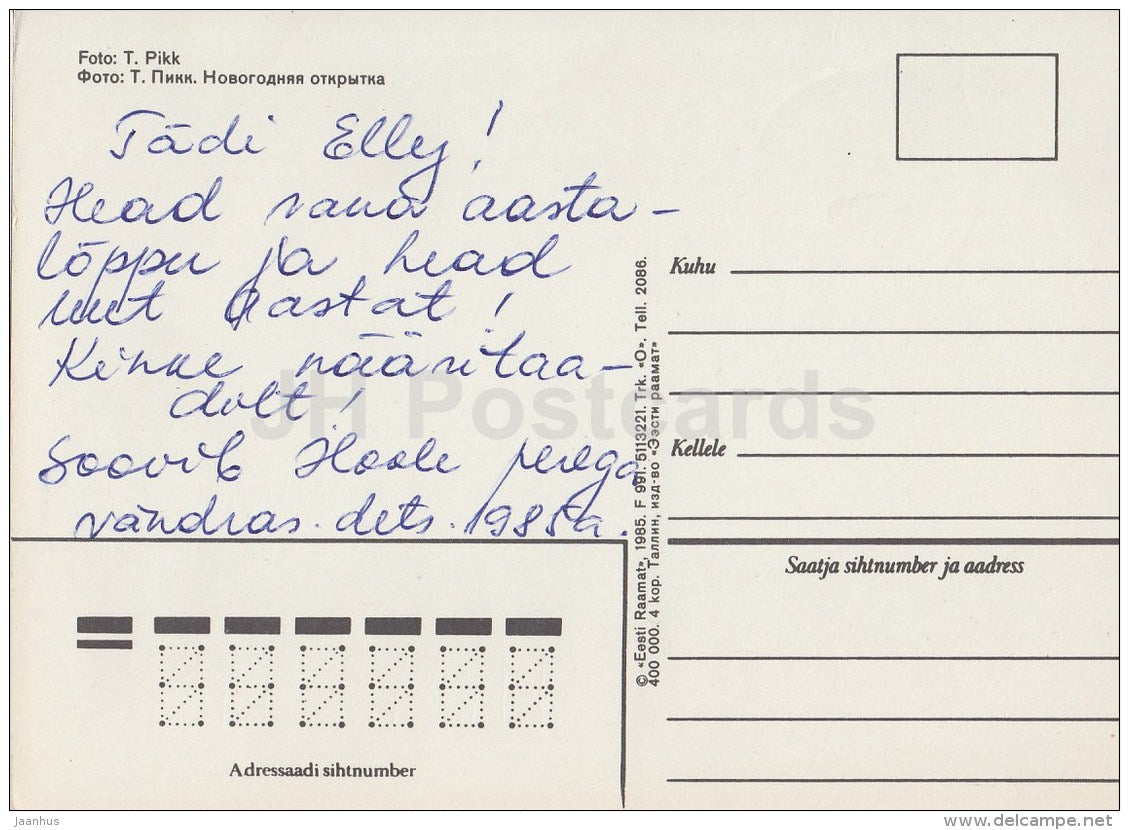 Foto: T. Pikk
Фото: Т. Пикк. Новогодняя открытка
Tädi Elly!
Head vana aasta-
lõppu ja head
uut aastat!
Kinke nääritaa-
dilt!
Soovib Hoole perega
Vändras. dets. 1985a.
Kuhu
Kellele
Saatja sihtnumber ja aadress
© «Eesti Raamat», 1985. F 991. 5113221. Trk. «O». Tell. 2086.
400 000. 4 кор. Таллин, изд-во «Ээсти раамат»
Adressaadi sihtnumber
JH Postcards
Jaanhus
www.delcampe.net